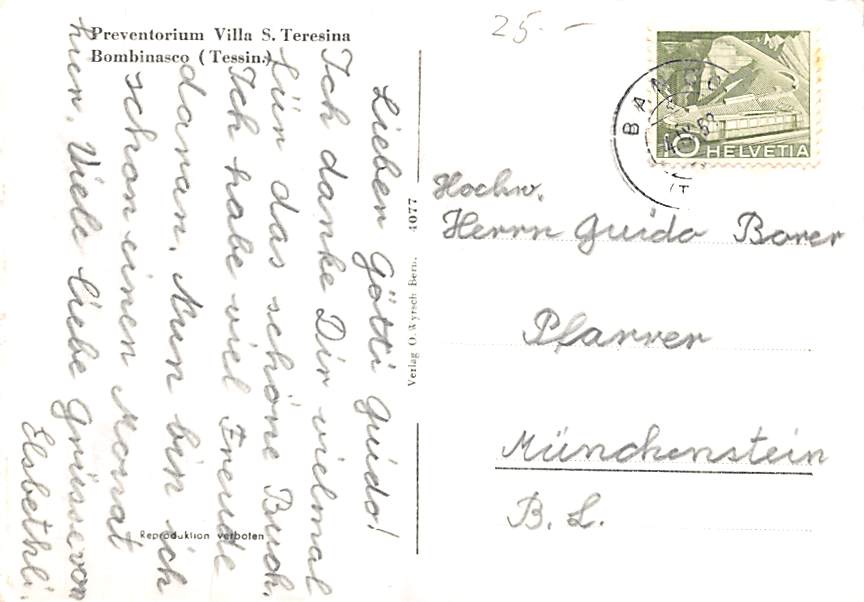 Preventorium Villa S. Teresina
Bombinasco (Tessin.)
25.-
Lieben Götti Guido!
Ich danke Dir vielmal
für das schöne Buch.
Ich habe viel Freude
daran. Nun bin ich
schon einen Monat
hier. Viele liebe Grüsse von
Elsbethli.
Reproduktion verboten
Verlag O. Wyrsch Bern. 4077
BANCO
10 HELVETIA
Hochw.
Herrn Guido Borer
Pfarrer
Münchenstein
B. L.